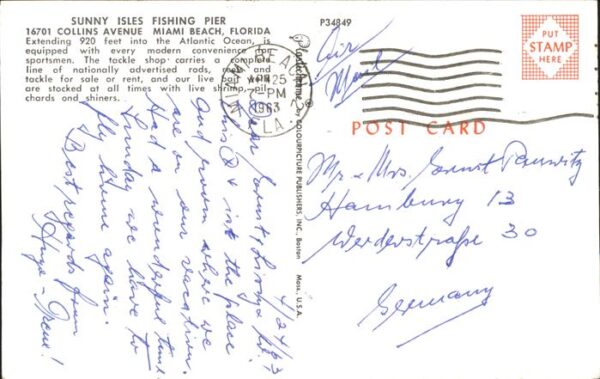 SUNNY ISLES FISHING PIER
16701 COLLINS AVENUE MIAMI BEACH, FLORIDA
Extending 920 feet into the Atlantic Ocean, is
equipped with every modern convenience for
sportsmen. The tackle shop carries a complete
line of nationally advertised rods, reels and
tackle for sale or rent, and our live bait
are stocked at all times with live shrimp, pil-
chards and shiners.
4/24/63
Dear Ernst &
This is the place
and room where we
are on our vacation.
Had a wonderful time.
Sunday we have to
fly home again.
Best regards from
Hugo - Irene!
P34849
Plastichrome ® by COLOURPICTURE PUBLISHERS, INC., Boston Mass., U.S.A.
MIAMI BEACH
APR 25
PM
1963
FLA.
PUT
STAMP
HERE
Air
Mail
POST CARD
Mr. & Mrs. Ernst
Hamburg 13
Werderstraße 30
Germany